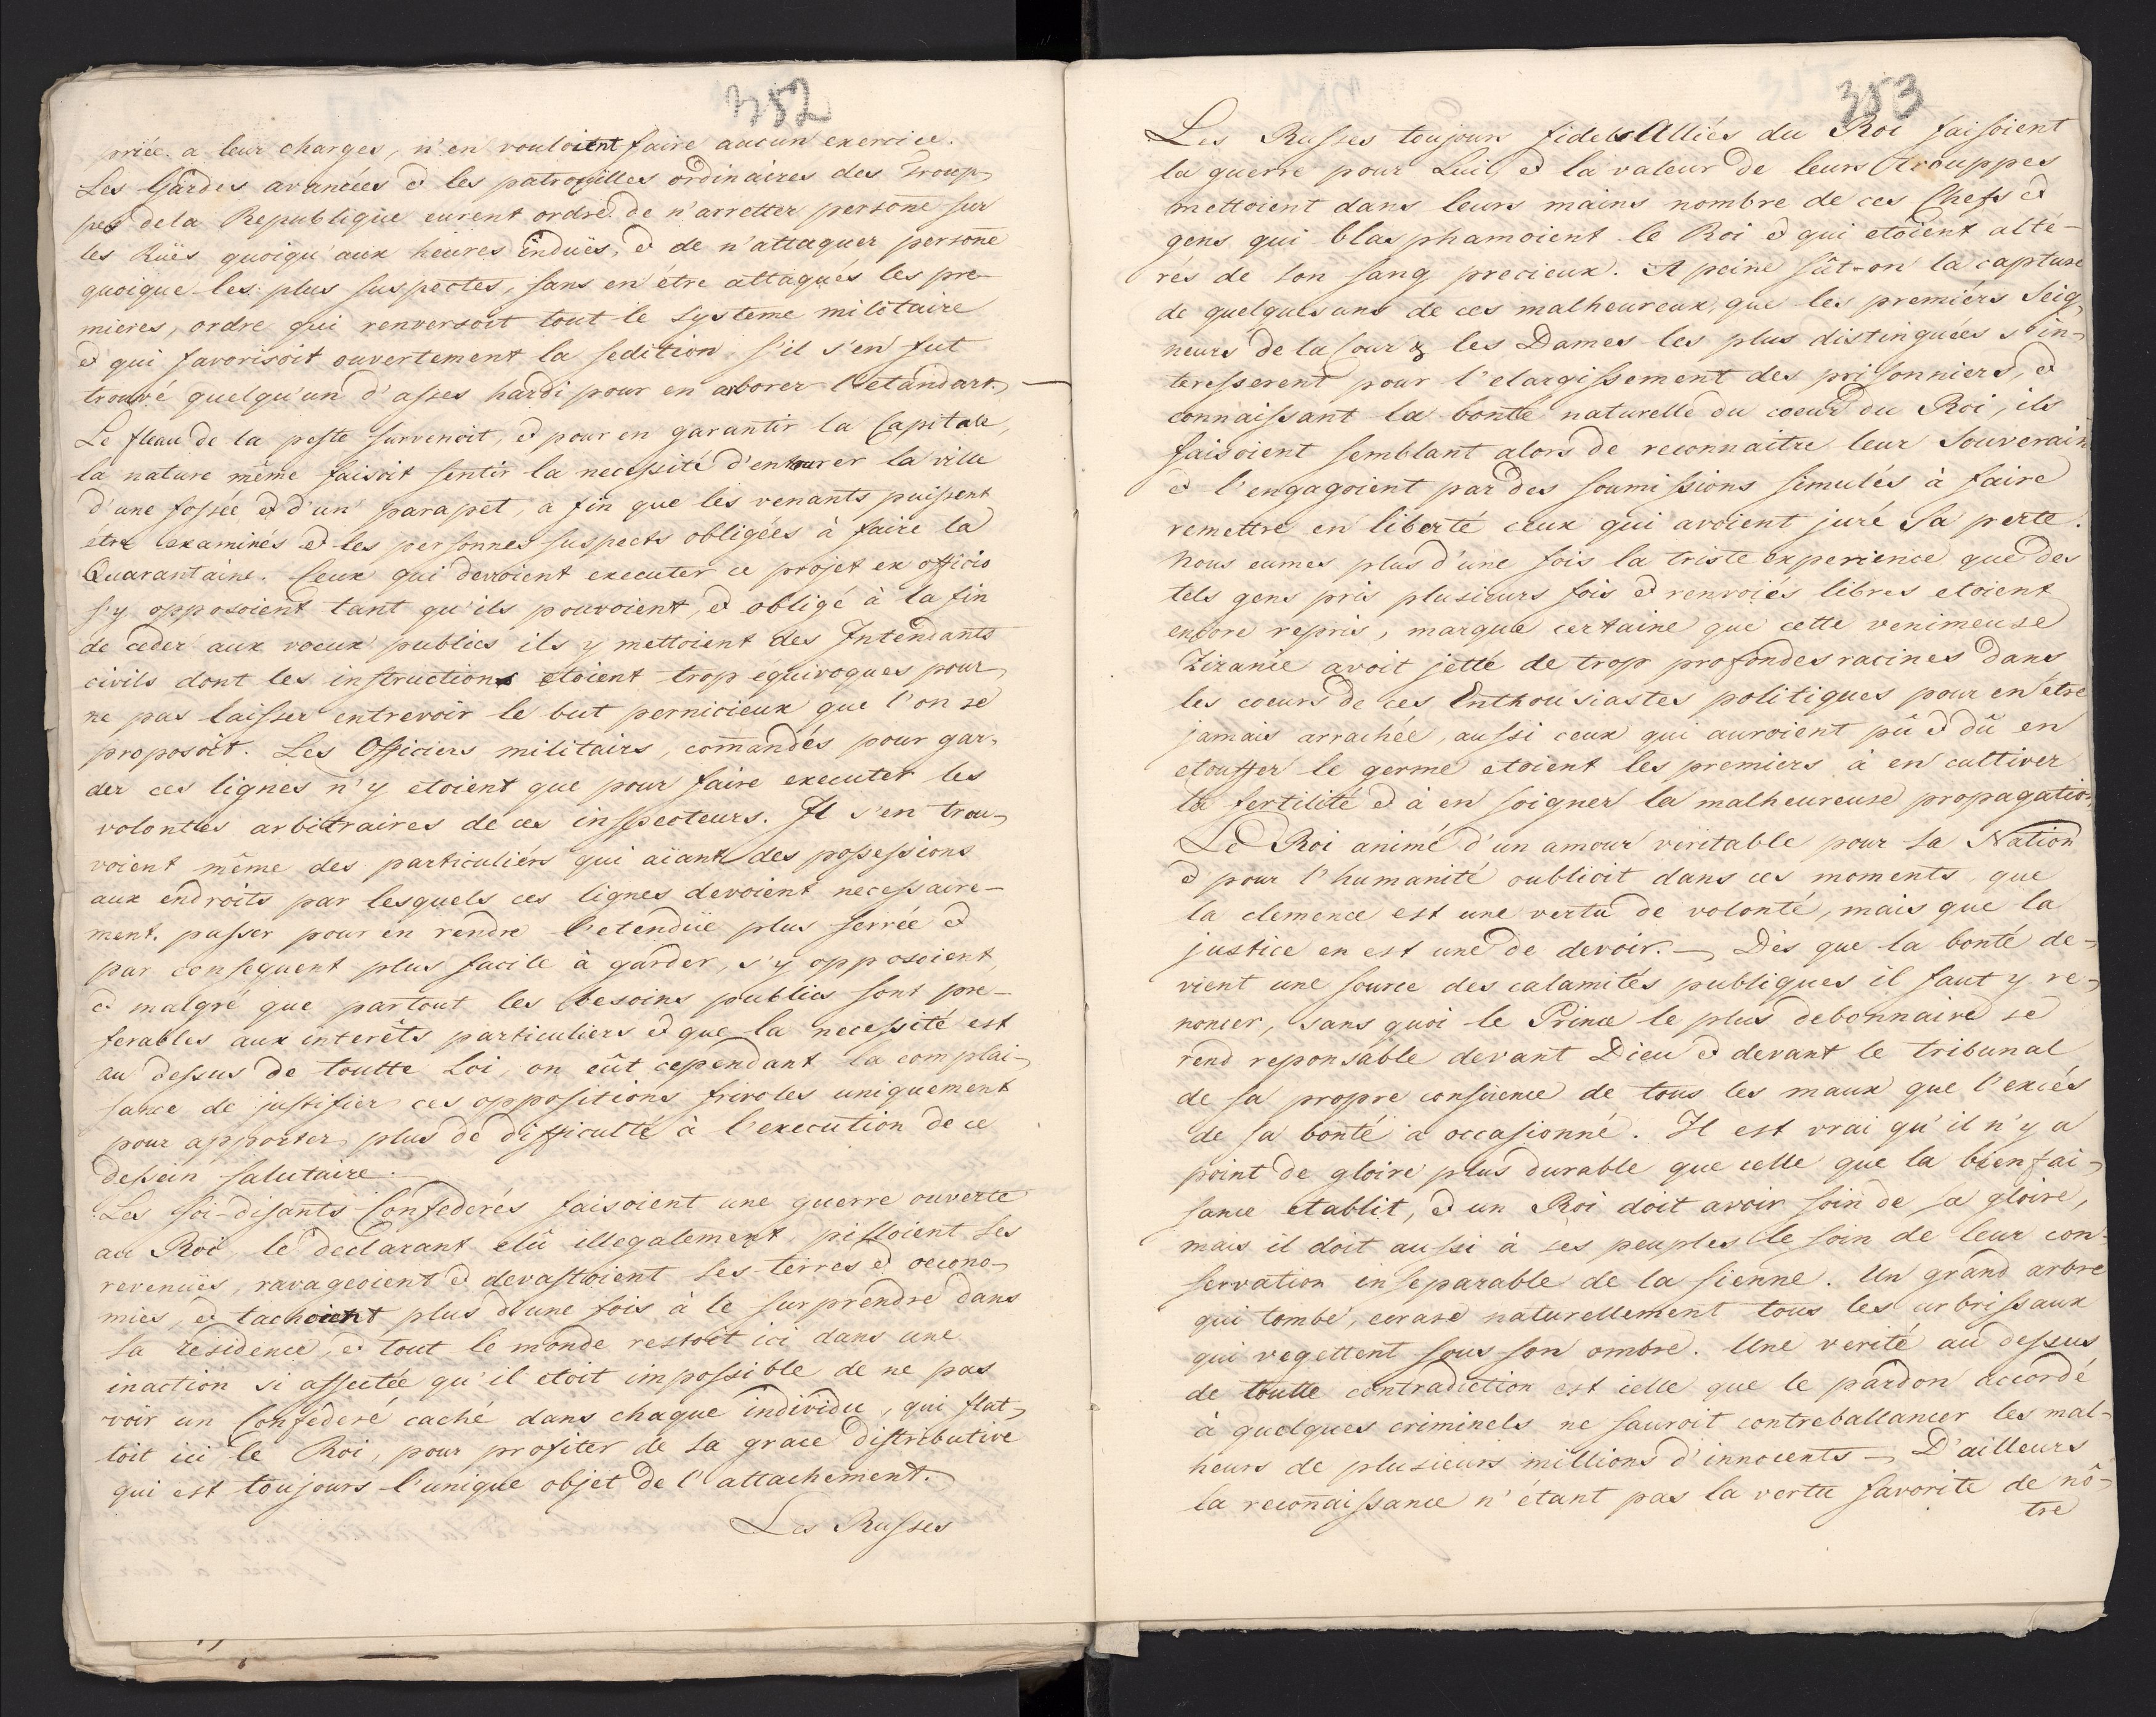 352
priée a leur charges, n'en vouloient faire aucun exercice.
Les Gardes avancées et les patrouilles ordinaires des Troup-
pes de la Republique eurent ordre de n'arretter persone sur
les Rües quoiqu'aux heures induës, et de n'attaquer persone
quoique les plus suspectes, sans en étre attaqués les pre-
mieres, ordre qui renversoit tout le systeme militaire
et qui favorisoit ouvertement la sedition s'il s'en fut
trouvé quelqu'un d'asses hardi pour en arborer l'etandart.
Le fleau de la peste survenoit, et pour en garantir la Capitale,
la nature même faisoit sentir la necessité d'entourer la ville
d'une fossée et d'un parapet, a fin que les venants puissent
étre examinés et les personnes suspects obligées à faire la
Quarantaine. Ceux qui devoient executer ce projet ex officio
s'y opposoient tant qu'ils pouvoient, et obligé à la fin
de ceder aux voeux publics ils y mettoient des Intendants
civils dont les instructions etoient trop équivoques pour
ne pas laisser entrevoir le but pernicieux que l'on se
proposoit. Les Officiers militairs, comandés pour gar-
der ces lignes n'y etoient que pour faire executer les
volontes arbitraires de ces inspecteurs. Il s'en trou-
voient même des particuliérs qui aïant des possessions
aux endroits par lesquels ces lignes devoient necessaire-
ment passer pour en rendre l'etendüe plus serrée et
par consequent plus facile à garder, s'y opposoient,
et malgré que partout les besoins publics sont pre-
ferables aux interêts particuliers et que la necessité est
au dessus de toutte Loi, on eût cependant la complai-
sance de justifier ces oppositions frivoles uniquement
pour apporter plus de difficulté à l'execution de ce
dessein salutaire.
Les soi-disants Confederés faisoient une guerre ouverte
au Roi, le declarant elû illegalement, pilloient ses
revenües, ravageoient et devastoient ses terres et oecono-
mies, et tachoient plus d'une fois à le surprendre dans
sa residence, et tout le monde restoit ici dans une
inaction si affectée qu'il etoit impossible de ne pas
voir un Confederé caché dans chaque individu, qui flat-
toit ici le Roi, pour profiter de sa grace distributive
qui est toujours l'unique objet de l'attachement.
Les Russes
353
Les Russes toujours fidels Alliés du Roi faisoient
la guerre pour Lui, et la valeur de leurs trouppes
mettoient dans leurs mains nombre de ces Chefs et
gens qui blasphamoient le Roi et qui etoient alte-
rés de son sang precieux. A peine sût-on la capture
de quelquesuns de ces malheureux, que les premiérs Seig-
neurs de la Cour & les Dames les plus distinguées s'in-
teresserent pour l'elargissement des prisonniers, et
connaissant la bonté naturelle du coeur du Roi, ils
faisoient semblant alors de reconnaitre leur Souverain
et l'engagoient par des soumissions simulés à faire
remettre en liberté ceux qui avoient juré sa perte.
Nous eumes plus d'une fois la triste experience que des
tels gens pris plusieurs fois et renvoiés libres etoient
encore repris, marque certaine que cette venimeuse
Zizanie avoit jetté de trop profondes racines dans
les coeurs de ces Enthousiastes politiques pour en étre
jamais arrachée, aussi ceux qui auroient pû et dû en
etouffer le germe etoient les premiers à en cultiver
la fertilité et à en soigner la malheureuse propagation.
Le Roi animé d'un amour veritable pour sa Nation
et pour l'humanité oublioit dans ces moments que
la clemence est une vertu de volonté, mais que la
justice en est une de devoir. - Dès que la bonté de-
vient une source des calamités publiques il faut y re-
noncer, sans quoi le Prince le plus debonnaire se
rend reponsable devant Dieu et devant le tribunal
de sa propre consience de tous les maux que l'excés
de sa bonté a occasionné. Il est vrai qu'il n'y a
point de gloire plus durable que celle que la bienfai-
sance etablit, et un Roi doit avoir soin de sa gloire,
mais il doit aussi à ses peuples le soin de leur con-
servation inseparable de la sienne. Un grand arbre
qui tombe, ecrase naturellement tous les arbrissaux
qui vegettent sous son ombre. Une verité au dessus
de toutte contradiction est celle que le pardon accordé
à quelques criminels ne sauroit contreballancer les mal-
heurs de plusieurs millions d'innocents - D'ailleurs
la reconaissance n'étant pas la vertu favorite de nô-
tre